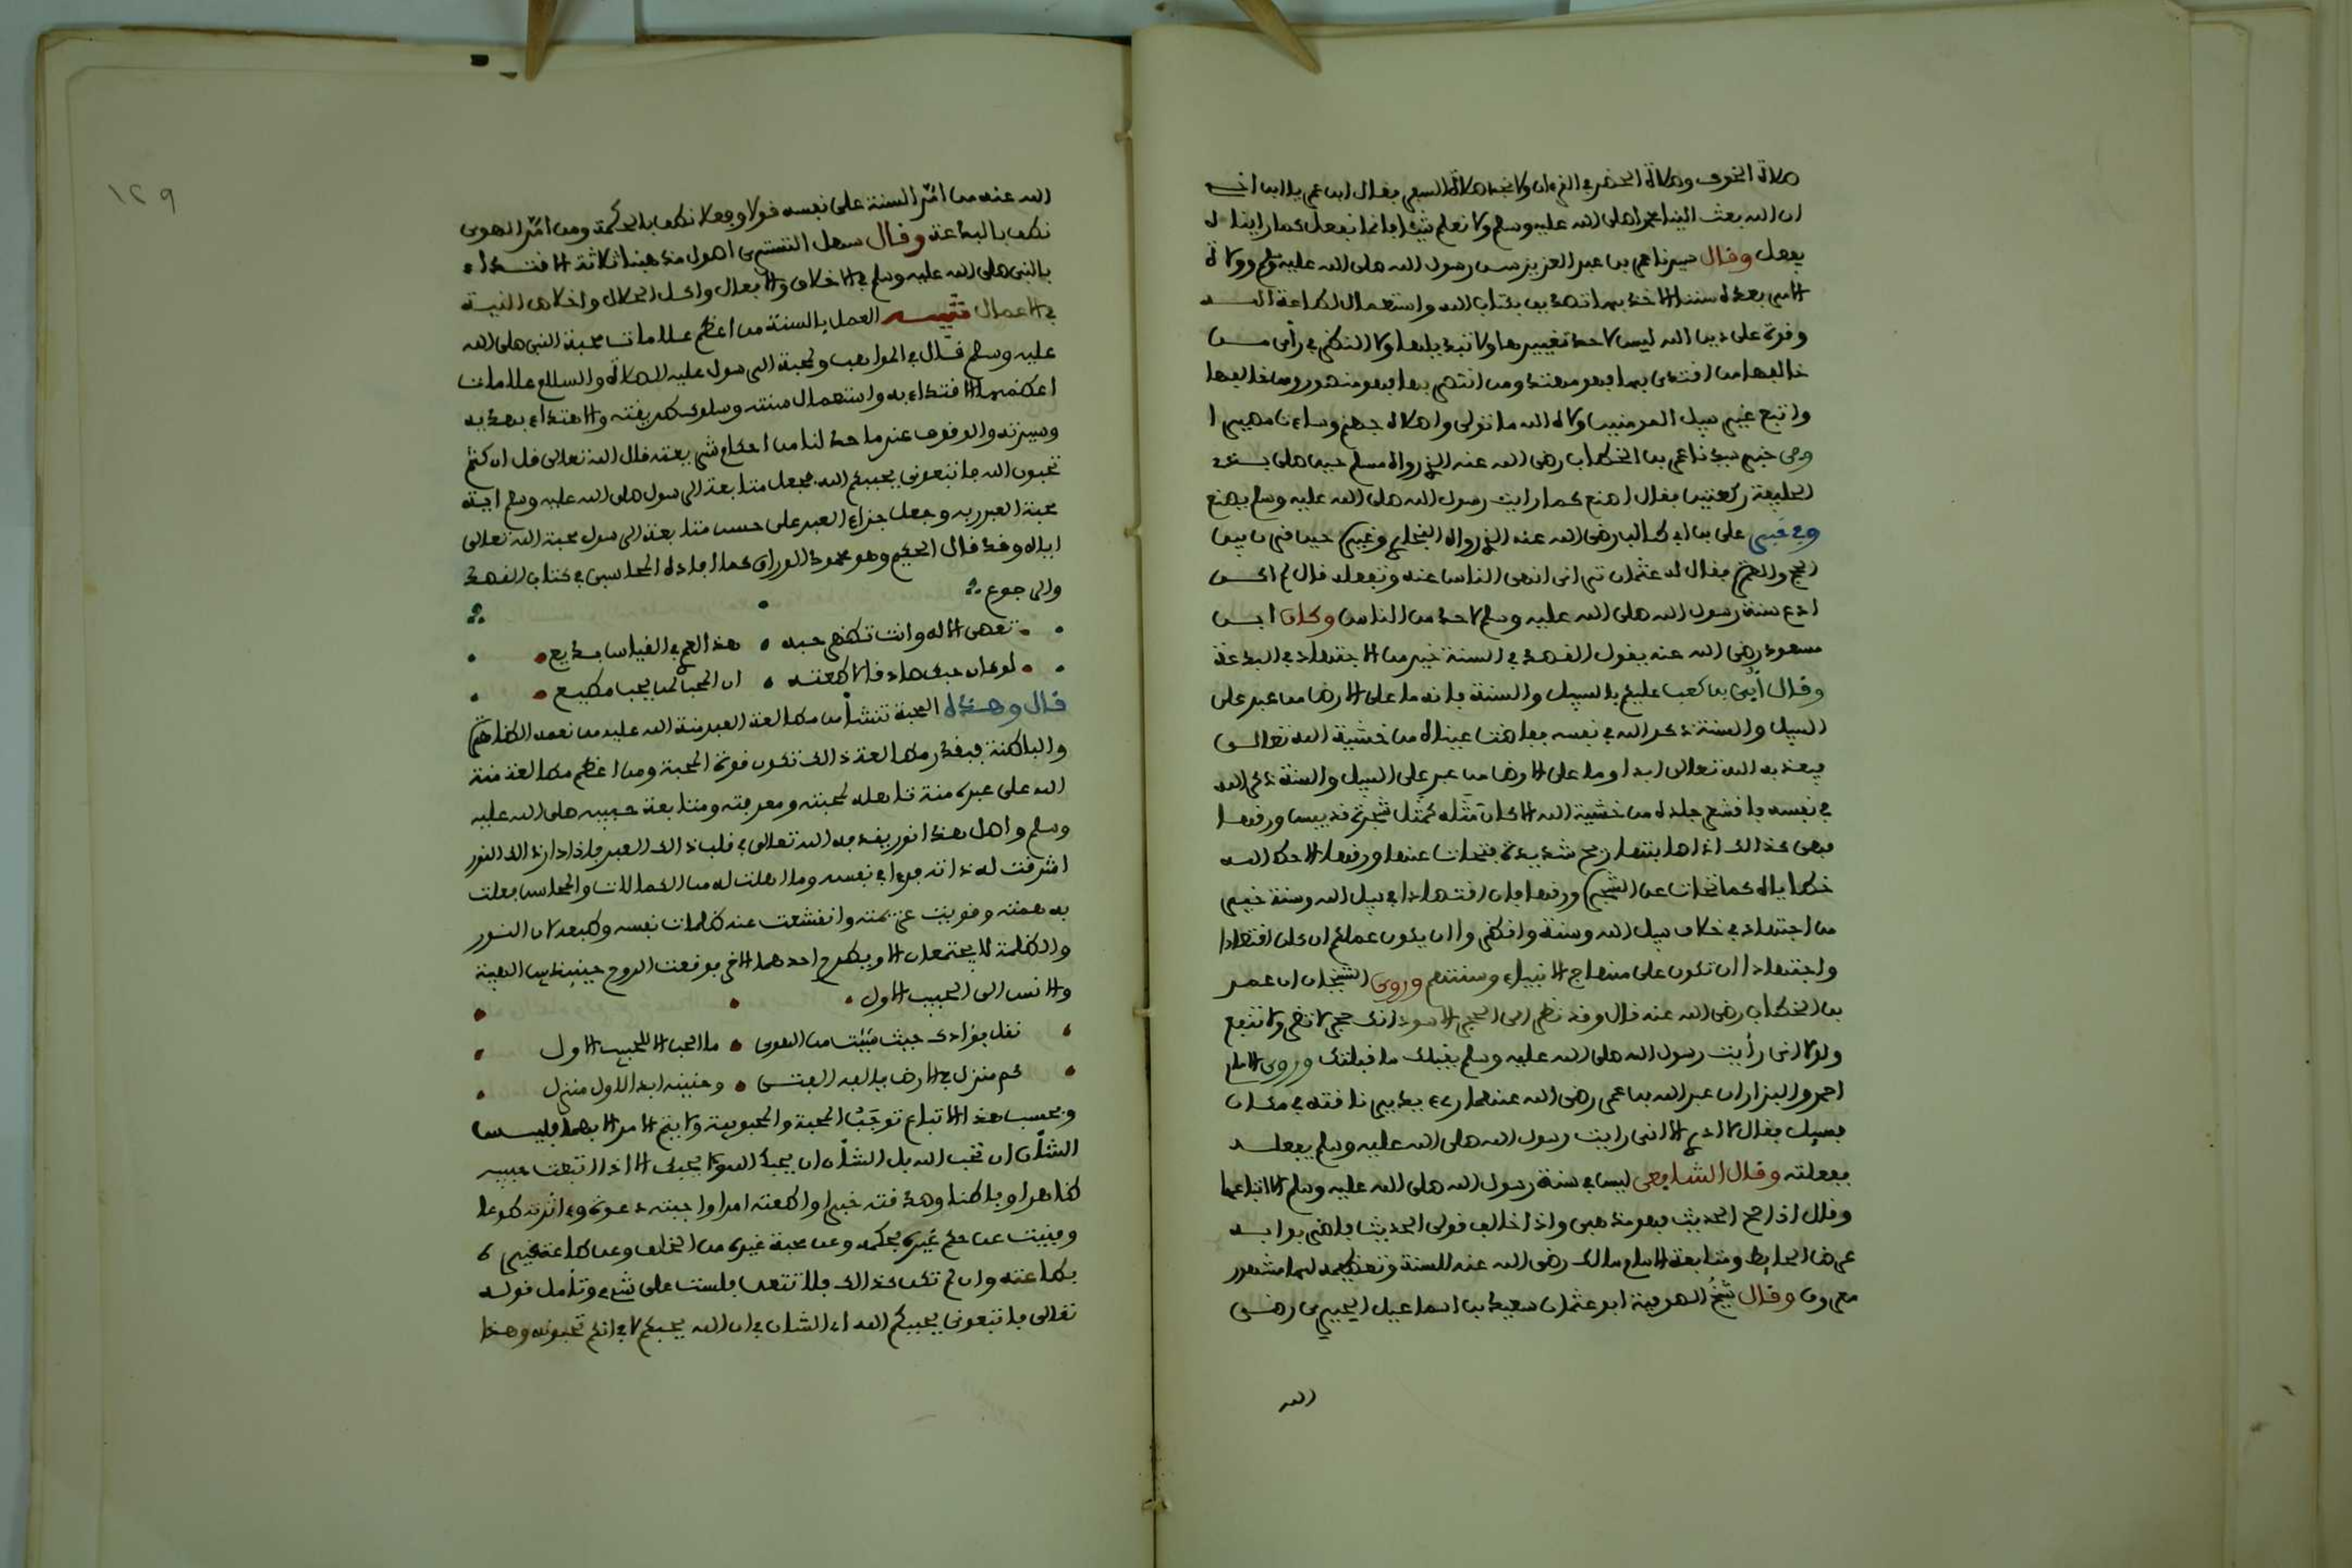 صلاة الخوف وصلاة الحضر في القرءان ولا نجد صلاة السفر فقال ابن عمر يا ابن اخي
ان الله بعث الينا محمدا صلى الله عليه وسلم ولا نعلم شيئا فانما نفعل كما رايناه
يفعل وقال سيدنا عمر بن عبد العزيز سن رسول الله صلى الله عليه وسلم وولاة
الامر بعده سننا الاخذ بها تصديق بكتاب الله واستعمال لطاعة الله
وقوة على دين الله ليس لاحد تغييرها ولا تبديلها ولا النظر في رأي من
خالفها من اقتدى بها فهو مهتد ومن انتصر بها فهو منصور ومن خالفها
واتبع غير سبيل المومنين ولاه الله ما تولى واصلاه جهنم وساءت مصيرا
وفي خبر سيدنا عمر بن الخطاب رضي الله عنه الذي رواه مسلم حين صلى بذي
الحليفة ركعتين فقال اصنع كما رايت رسول الله صلى الله عليه وسلم يصنع
وفي خبر علي بن ابي طالب رضي الله عنه الذي رواه البخاري وغيره حين قرن بين
الحج والعمرة فقال له عثمان ترى اني انهى الناس عنه وتفعله قال لم اكن
ادع سنة رسول الله صلى الله عليه وسلم لاحد من الناس وكان ابن
مسعود رضي الله عنه يقول القصد في السنة خير من الاجتهاد في البدعة
وقال أبي بن كعب عليكم بالسبيل والسنة فانه ما على الارض من عبد على
السبيل والسنة ذكر الله في نفسه ففاضت عيناه من خشية الله تعالى
فيعذبه الله تعالى ابدا وما على الارض من عبد على السبيل والسنة ذكر الله
في نفسه فاقشعر جلده من خشية الله الا كان مثله كمثل شجرة قد يبس ورقها
فهي كذالك اذ اصابتها ريح شديدة فتحات عنها ورقها الا حط الله
خطاياه كما تحات عن الشجرة ورقها فان اقتصادا في سبيل الله وسنة خير
من اجتهاد في خلاف سبيل الله وسنة وانظروا ان يكون عملكم ان كان اقتصادا
واجتهادا ان تكون على منهاج الانبياء وسنتهم وروى الشيخان ان عمر
بن الخطاب رضي الله عنه قال وقد نظر الى الحجر الاسود انك حجر لا تضر ولا تنفع
ولولا اني رأيت رسول الله صلى الله عليه وسلم يقبلك ما قبلتك وروى الامام
احمد والبزار ان عبد الله بن عمر رضي الله عنهما رءي يدير ناقته في مكان
فسيل فقال لا ادري الا اني رايت رسول الله صلى الله عليه وسلم يفعله
ففعلته وقال الشافعي ليس في سنة رسول الله صلى الله عليه وسلم الا اتباعها
وقال اذا صح الحديث فهو مذهبي واذا خالف قولي الحديث فاضربوا به
عرض الحايط ومتابعة الامام مالك رضي الله عنه للسنة وتعظيمه لها مشهور
معروف وقال شيخ الصوفية ابو عثمان سعيد بن اسماعيل الحيري رضي
الله
١٢٩
الله عنه من امر السنة على نفسه قولا وفعلا نطق بالحكمة ومن امر الهوى
نطق بالبدعة وقال سهل التستري اصول مذهبنا ثلاثة الاقتداء
بالنبي صلى الله عليه وسلم في الاخلاق والافعال واكل الحلال واخلاص النية
في الاعمال تنبيه العمل بالسنة من اعظم علامات محبة النبي صلى الله
عليه وسلم قال في المواهب ولمحبة الرسول عليه الصلاة والسلام علامات
اعظمها الاقتداء به واستعمال سنته وسلوك طريقته والاهتداء بهديه
وسيرته والوقوف عند ما حد لنا من احكام شريعته قال الله تعالى قل ان كنتم
تحبون الله فاتبعوني يحببكم الله فجعل متابعة الرسول صلى الله عليه وسلم اية
محبة العبد ربه وجعل جزاء العبد على حسن متابعة الرسول محبة الله تعالى
اياه وقد قال الحكيم وهو محمود الوراق كما افاده المحاسبي في كتاب القصد
والرجوع
تعصي الاله وانت تظهر حبه هذا لعمري في القياس بديع
لو كان حبك صادقا لاطعته ان المحب لمن يحب مطيع
قال وهذه المحبة تنشأ من مطالعة العبد منة الله عليه من نعمه الظاهرة
والباطنة فبقدر مطالعة ذالك تكون قوة المحبة ومن اعظم مطالعة منة
الله على عبده منة تاهله لمحبته ومعرفته ومتابعة حبيبه صلى الله عليه
وسلم واصل هذا نور يقذفه الله تعالى في قلب ذالك العبد فاذا دار ذالك النور
اشرقت له ذاته فرءا في نفسه وما اهلت له من الكمالات والمحاسن فعلت
به همته وقويت عزيمته وانقشعت عنه ظلمات نفسه وطبعه لان النور
والظلمة لا يجتمعان الا ويطرح احدهما الاخر فوقعت الروح حينئذ بين الهيبة
والانس الى الحبيب الاول
نقل فؤادك حيث شئت من الهوى ما الحب الا للحبيب الاول
كم منزل في الارض يالفه الفتى وحنينه ابدا لاول منزل
وبحسب هذا الاتباع توجب المحبة والمحبوبية ولا يتم الامر الا بهما فليس
الشأن ان تحب الله بل الشأن ان يحبك الله ولا يحبك الا اذا اتبعت حبيبه
ظاهرا وباطنا وصدقته خبرا واطعته امرا واجبته دعوة وءاثرته طوعا
وفنيت عن حكم غيره بحكمه وعن محبة غيره من الخلق وعن طاعة غيره
بطاعته وان لم تكن كذالك فلا تتعن فلست على شيء وتأمل قوله
تعالى فاتبعوني يحببكم الله اي الشان في ان الله يحبكم لا في انكم تحبونه وهذا